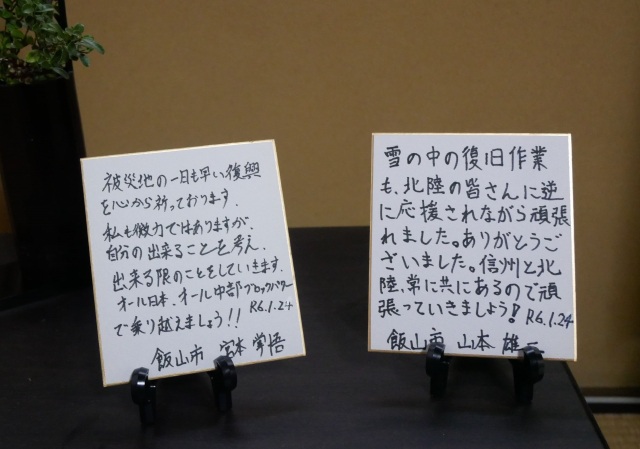 被災地の一日も早い復興
を心から祈っております。
私も微力ではありますが、
自分の出来ることを考え、
出来る限のことをしていきます。
オール日本、オール中部ブロックパワー
で乗り越えましょう!! R6.1.24
飯山市 宮本 学悟
雪の中の復旧作業
も、北陸の皆さんに逆
に応援されながら頑張
れました。ありがとうご
ざいました。信州と北
陸、常に共にあるので頑
張っていきましょう! R6.1.24
飯山市 山本 雄